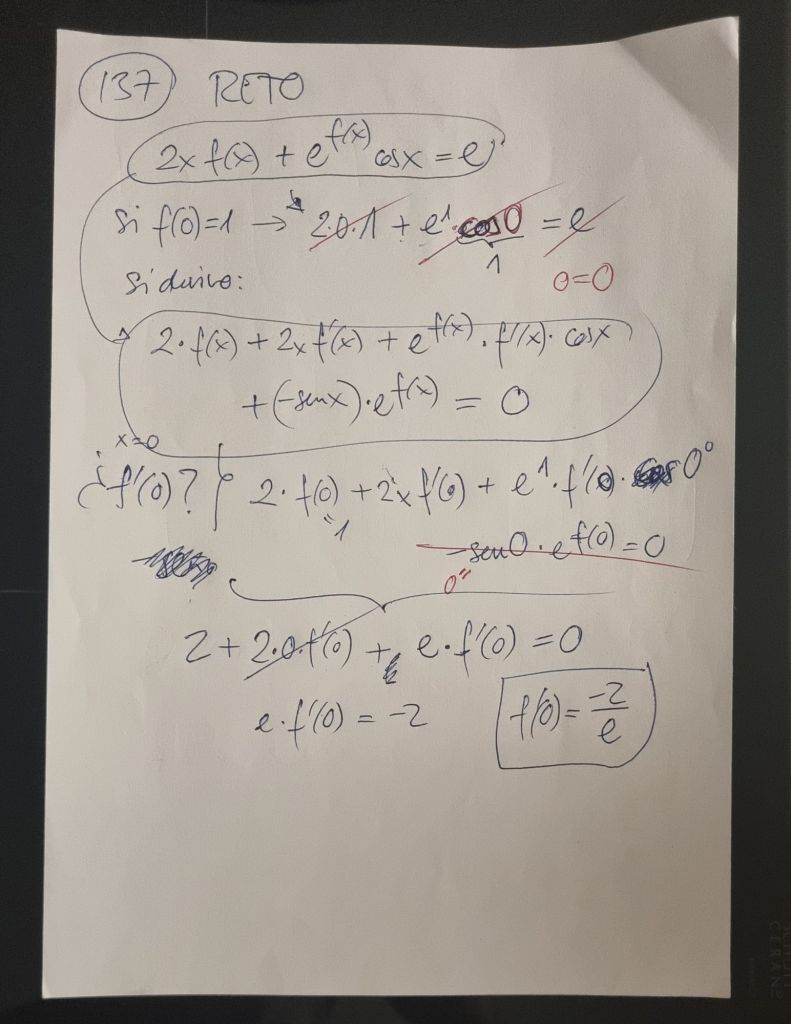 137 RETO
2x f(x) + e^f(x) cosx = e
si f(0)=1 → 2·0·1 + e^1 · cos0 = e
1
si derivo: 0=0
2·f(x) + 2x f'(x) + e^f(x) · f'(x) · cosx
+(-senx)·e^f(x) = 0
x=0
¿f'(0)? 2·f(0) + 2x f'(0) + e^1 · f'(0 · cos 0°
"1
-sen0 · e^f(0) = 0
0"
2 + 2·0·f'(0) + e·f'(0) = 0
e·f'(0) = -2 f'(0) = -2/e